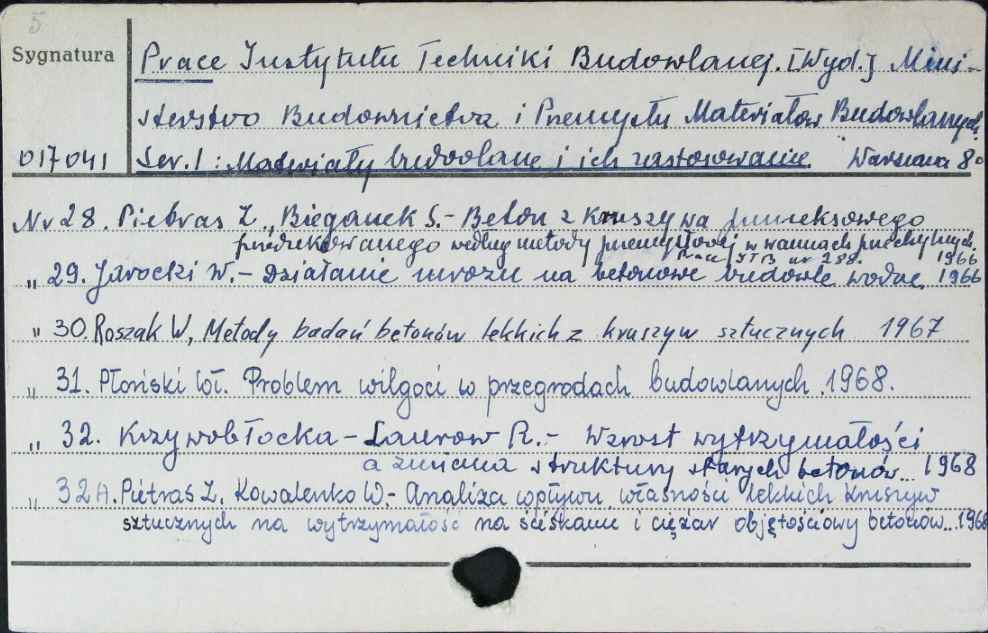 5
Sygnatura
Prace Instytutu Techniki Budowlanej. [Wyd.] Mini-
sterstwo Budownictwa i Przemysłu Materiałów Budowlanych.
017041 Ser. I : Materiały budowlane i ich zastosowanie. Warszawa 8°
Nr 28. Piebras Z., Bieganek S. - Beton z kruszywa pumeksowego
produkowanego według metody przemysłowej w wannach przechylnych.
Prace ITB nr 288. 1966
" 29. Jarocki W. - Działanie mrozu na betonowe budowle wodne. 1966
" 30. Roszak W, Metody badań betonów lekkich z kruszyw sztucznych 1967
" 31. Płoński Wł. Problem wilgoci w przegrodach budowlanych. 1968.
" 32. Krzywobłocka - Laurow R. - Wzrost wytrzymałości
a zmiana struktury starych betonów... 1968
" 32A. Pietraś Z. Kowalenko W. - Analiza wpływu własności lekkich kruszyw
sztucznych na wytrzymałość na ściskanie i ciężar objętościowy betonów... 1968